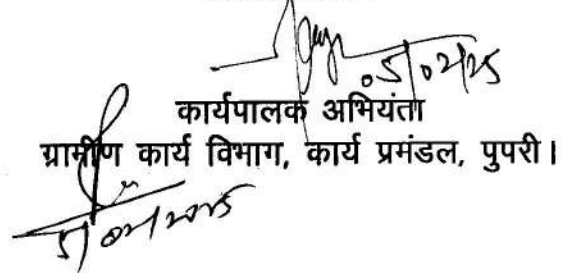 05/02/25
कार्यपालक अभियंता
ग्रामीण कार्य विभाग, कार्य प्रमंडल, पुपरी।